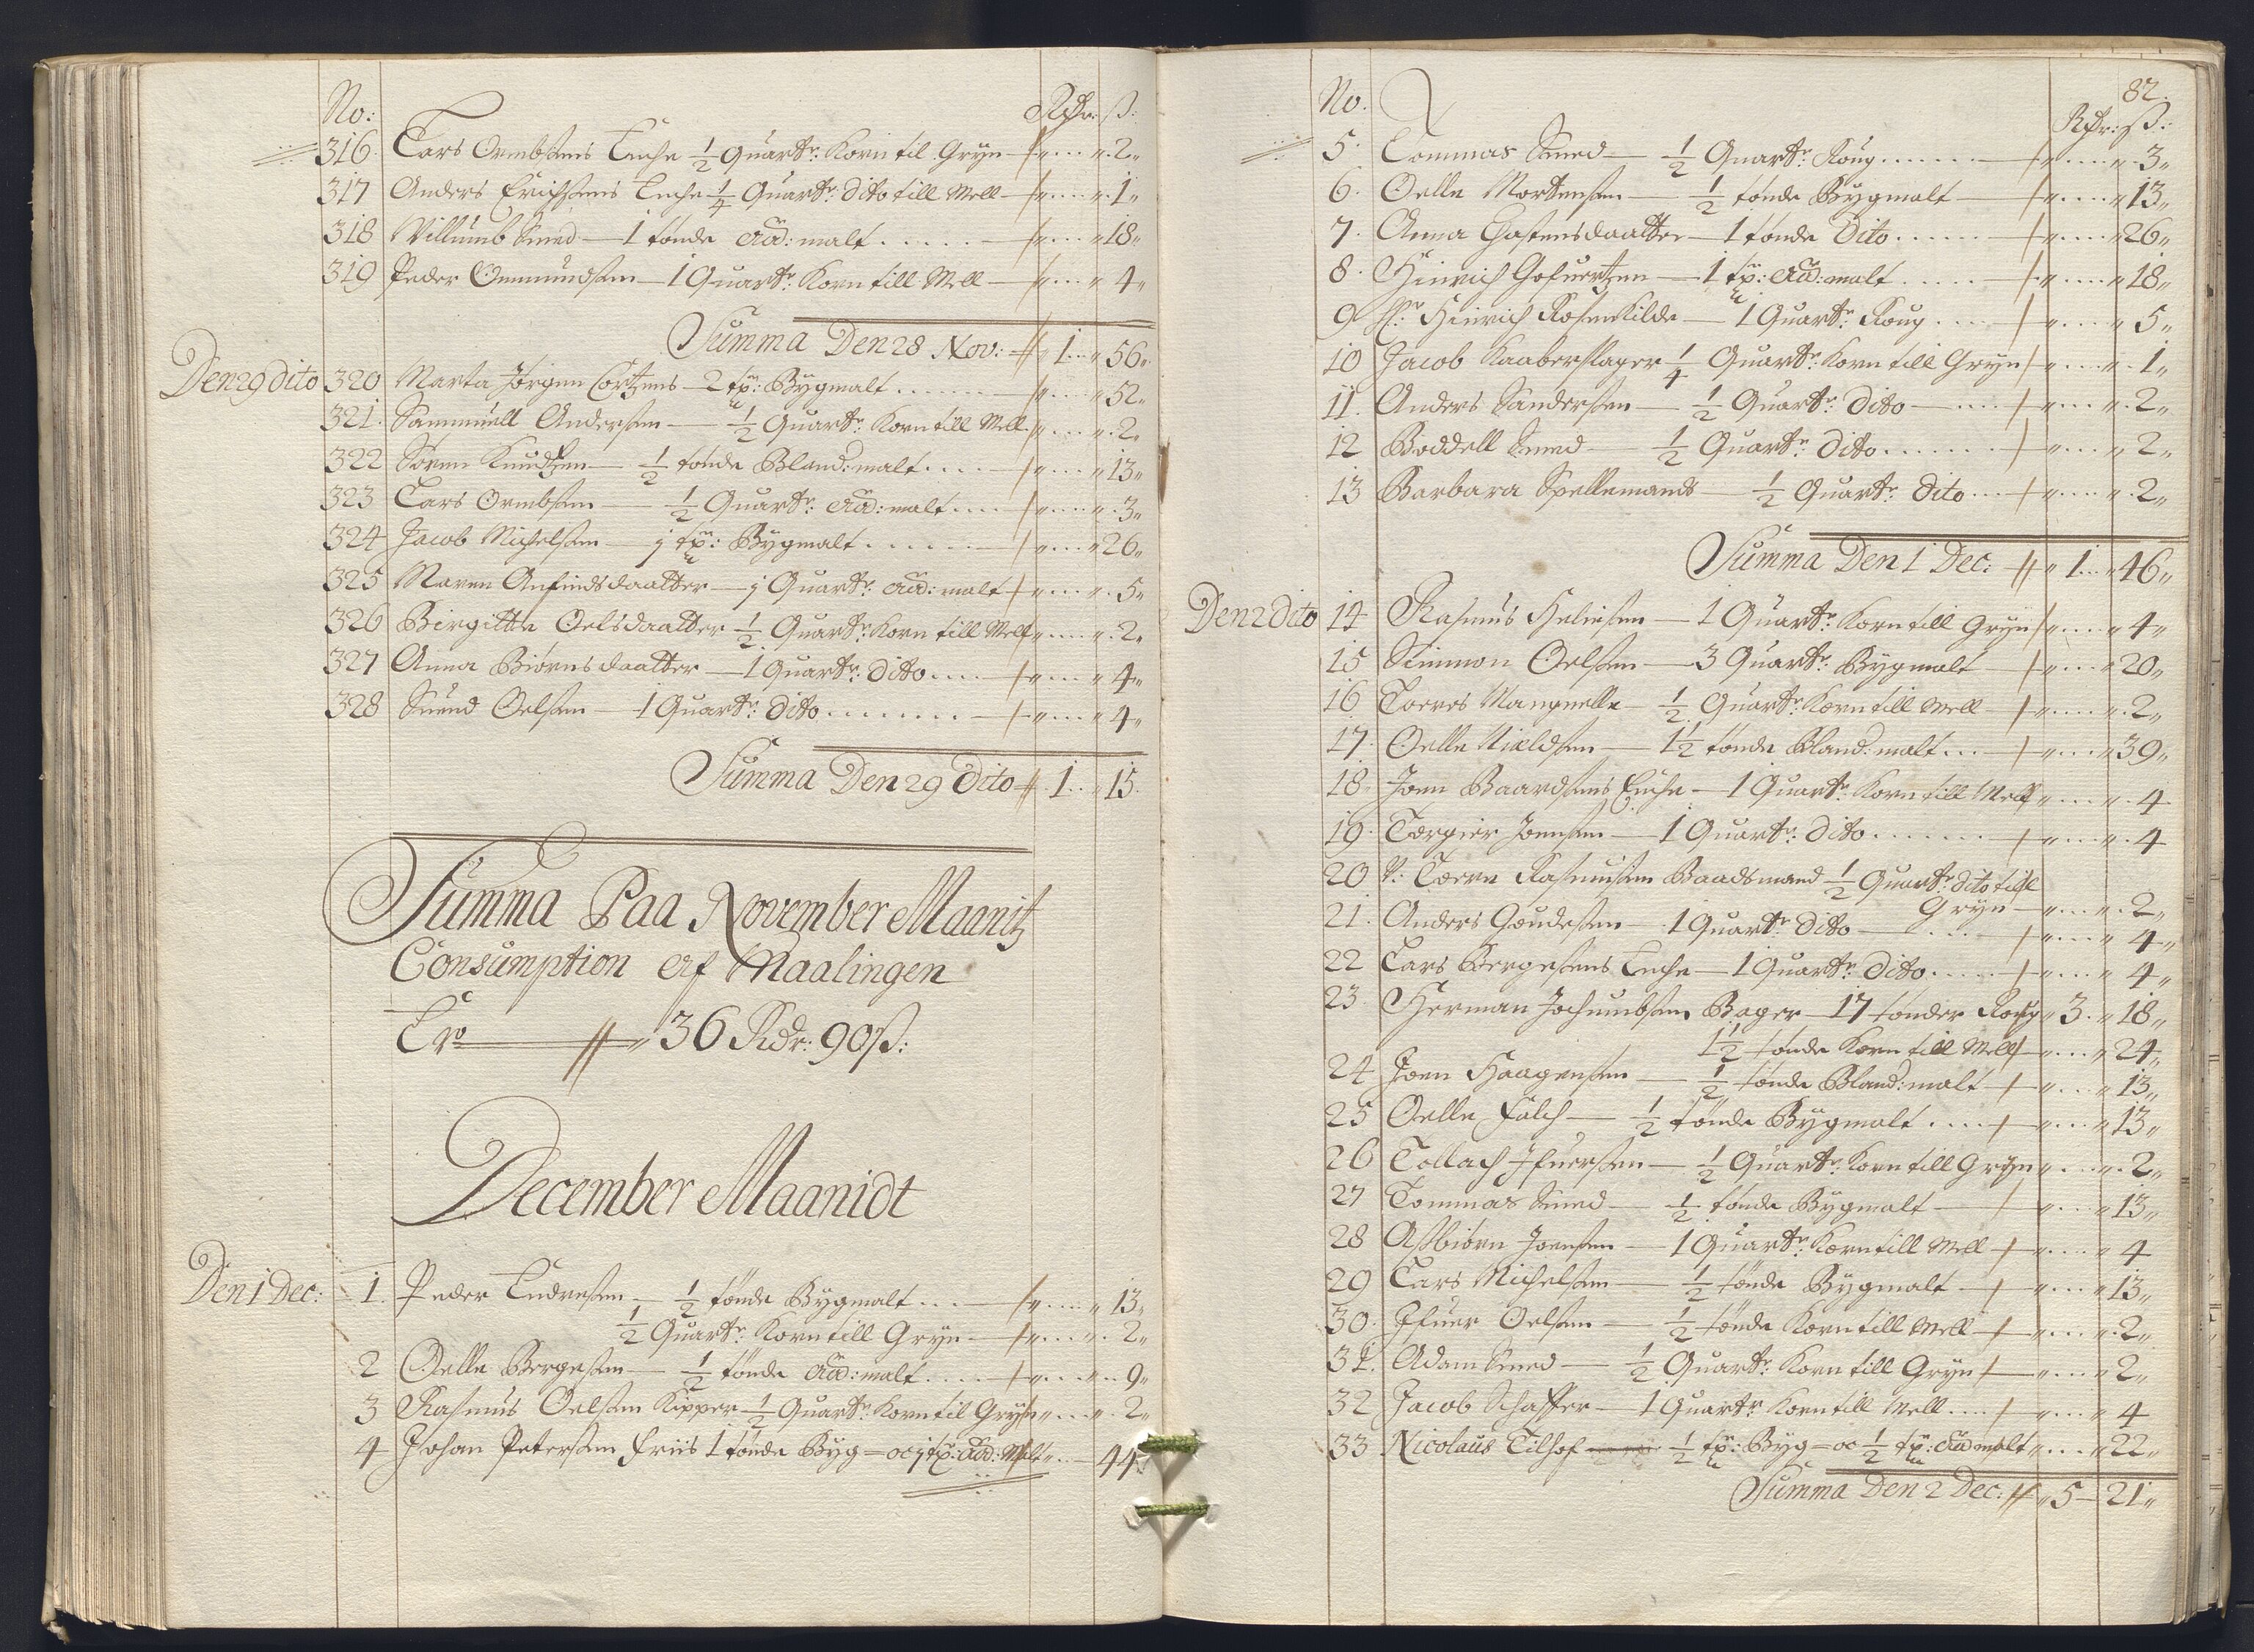 No: Rdr: ß:
316 Lars Ormbsens Enche ½ Quartr: Korn til Gryn 2
317 Anders Erichsens Enche ¼ Quartr: dito till Mell 1
318 Villumb Smed 1 tønde Aad: malt 18
319 Peder Ommundsen 1 Quartr: Korn till Mell 4
Summa Den 28 Nov: 1 56
Den 29 dito 320 Marta Jørgen Cortzens 2 tr: Bygmalt 52
321 Sammuell Andersen ½ Quartr: Korn till Mell 2
322 Søren Knudtzen ½ tønde Bland: malt 13
323 Lars Ormbsen ½ Quartr: Aad: malt 3
324 Jacob Michelsen j tr: Bygmalt 26
325 Maren Anfindsdaatter j Quartr: Aad: malt 5
326 Birgitte Oelsdaatter ½ Quartr: Korn till Mell 2
327 Anna Biørnsdaatter 1 Quartr: dito 4
328 Suend Oelsen 1 Quartr: dito 4
Summa Den 29 Dito 1 15
Summa Paa November Maanitz
Consumption Af Maalingen
Er 36 Rdr: 90 ß:
December Maanidt
Den 1 Dec: 1 Peder Endresen ½ tønde Bygmalt 13
½ Quartr: Korn till Gryn 2
2 Oelle Bergesen ½ tønde Aad: malt 9
3 Rasmus Oelsen Kipper ½ Quartr: Korn til Gryn 2
4 Johan Petersen Friis 1 tønde Byg = oc j tr: Aad: Malt 44
82.
No. Rdr: ß:
5 Tommas Smed ½ Quartr: Roug 3
6 Oelle Mortensen ½ tønde Bygmalt 13
7 Anna Chastensdaatter 1 tønde Dito 26
8 Hinrich Gofuertzen 1 tr: Aad: malt 18
9 Hr: Hinrich Rosenkilde 1 Quartr: Roug 5
10 Jacob Kaaberslager ¼ Quartr: Korn till Gryn 1
11 Anders Sandersen ½ Quartr: Dito 2
12 Boddell Smed ½ Quartr: dito 2
13 Barbara Spellemands ½ Quartr: dito 2
Summa Den 1 Dec: 1 46
Den 2 Dito 14 Rasmus Heliesen 1 Quartr: Korn till Gryn 4
15 Simmon Oelsen 3 Quartr: Bygmalt 20
16 Torres Mangnelle ½ Quartr: Korn till Mell 2
17 Oelle Nieldsen 1½ tønde Bland: malt 39
18 Joen Baardsens Enche 1 Quartr: Korn till Mell 4
19 Torgier Joensen 1 Quartr: dito 4
20 Toern Rasmusen Baadsmand ½ Quartr: dito till
Gryn 2
21 Anders Goudesen 1 Quartr: dito 4
22 Lars Bergesens Enche 1 Quartr: dito 4
23 Herman Jochumbsen Bager 17 tønder Roug 3 18
1½ tønde Korn till Mell 24
24 Joen Haagensen ½ tønde Bland: malt 13
25 Oelle Falch ½ tønde Bygmalt 13
26 Tollach Ifuersen ½ Quartr: Korn till Gryn 2
27 Tommas Smed ½ tønde Bygmalt 13
28 Asbiørn Joensen 1 Quartr: Korn till Mell 4
29 Lars Michelsen ½ tønde Bygmalt 13
30 Ifuer Oelsen ½ tønde Korn till Mell 2
31 Adam Smed ½ Quartr: Korn till Gryn 2
32 Jacob Schaffer 1 Quartr: Korn till Mell 4
33 Nicolaus Tilhof ½ tr: Byg = oc ½ tr: Aad malt 22
Summa Den 2 Dec: 5 21